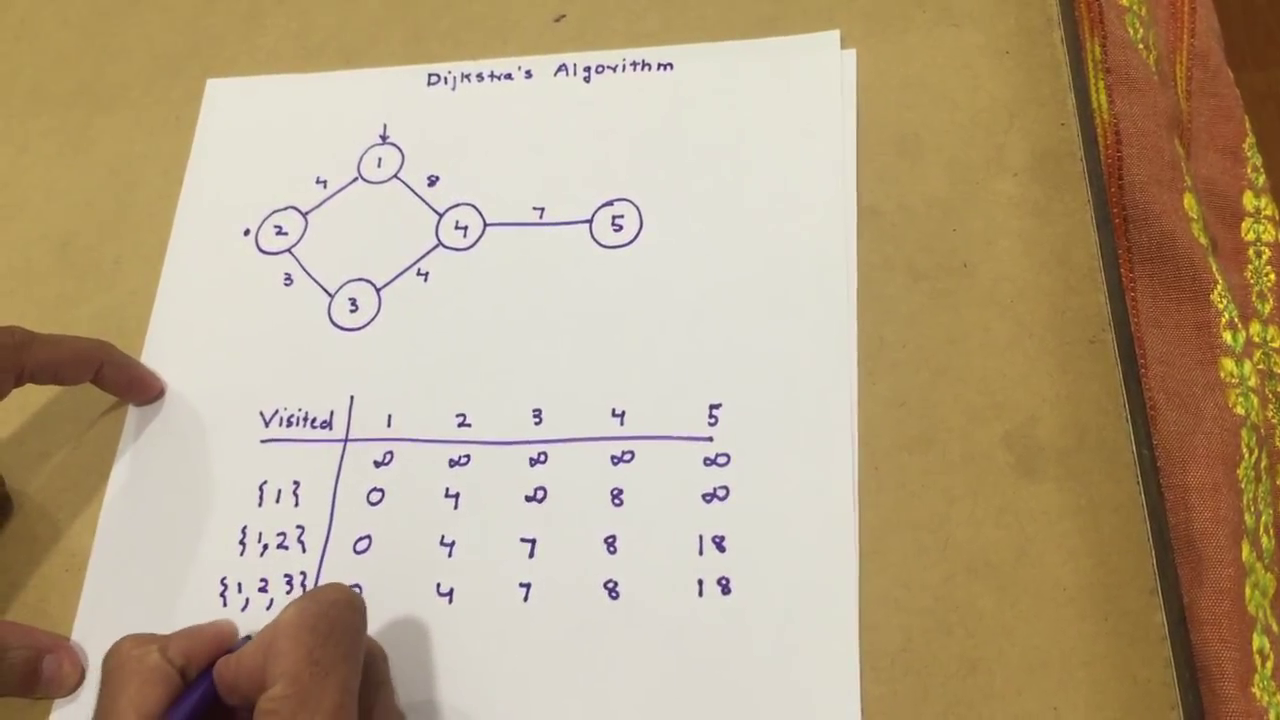 Dijkstra's Algorithm
1
4 8
2 4 7 5
3 4
3
Visited 1 2 3 4 5
∞ ∞ ∞ ∞ ∞
{1} 0 4 ∞ 8 ∞
{1,2} 0 4 7 8 18
{1,2,3} 4 7 8 18